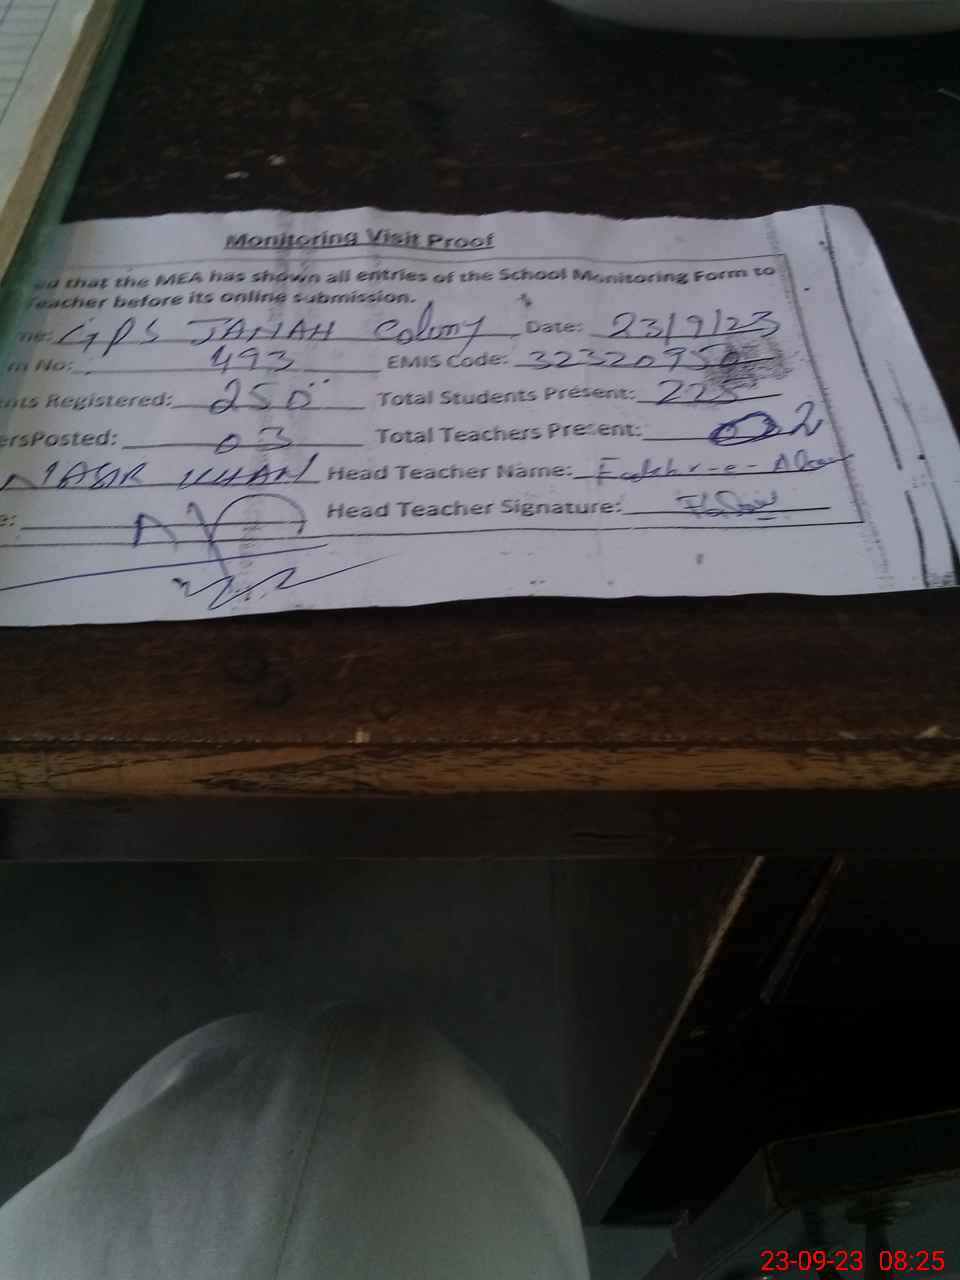 Monitoring Visit Proof
that the MEA has shown all entries of the School Monitoring Form to
Teacher before its online submission.
me: GPS JANAH Colony Date: 23/9/23
m No: 493 EMIS Code: 32320750
nts Registered: 250 Total Students Present: 225
ersPosted: 03 Total Teachers Present: 2
NASR KHAN Head Teacher Name: Fakhr-e-Alam
e: Head Teacher Signature:
23-09-23 08:25